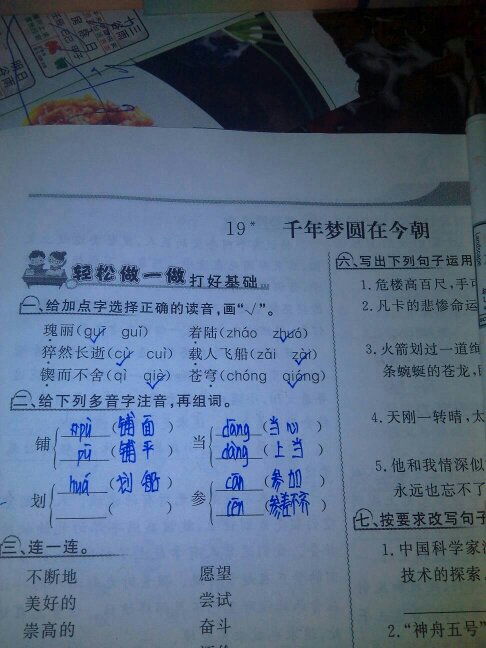 19* 千年梦圆在今朝
轻松做一做 打好基础
一、给加点字选择正确的读音,画“√”。
瑰丽(guī guǐ) 着陆(zháo zhuó)
猝然长逝(cù cuì) 载人飞船(zǎi zài)
锲而不舍(qì qiè) 苍穹(chóng qióng)
二、给下列多音字注音,再组词。
铺 pù(铺面) 当 dāng(当心)
pū(铺平) dàng(上当)
划 huá(划船) 参 cān(参加)
( ) cēn(参差不齐)
三、连一连。
不断地 愿望
美好的 尝试
崇高的 奋斗
六、写出下列句子运用
1. 危楼高百尺,手可
2. 凡卡的悲惨命运
3. 火箭划过一道绚
条蜿蜒的苍龙,
4. 天刚一转晴,太
5. 他和我情深似
永远也忘不了
七、按要求改写句子
1. 中国科学家
技术的探索
2. “神舟五号”